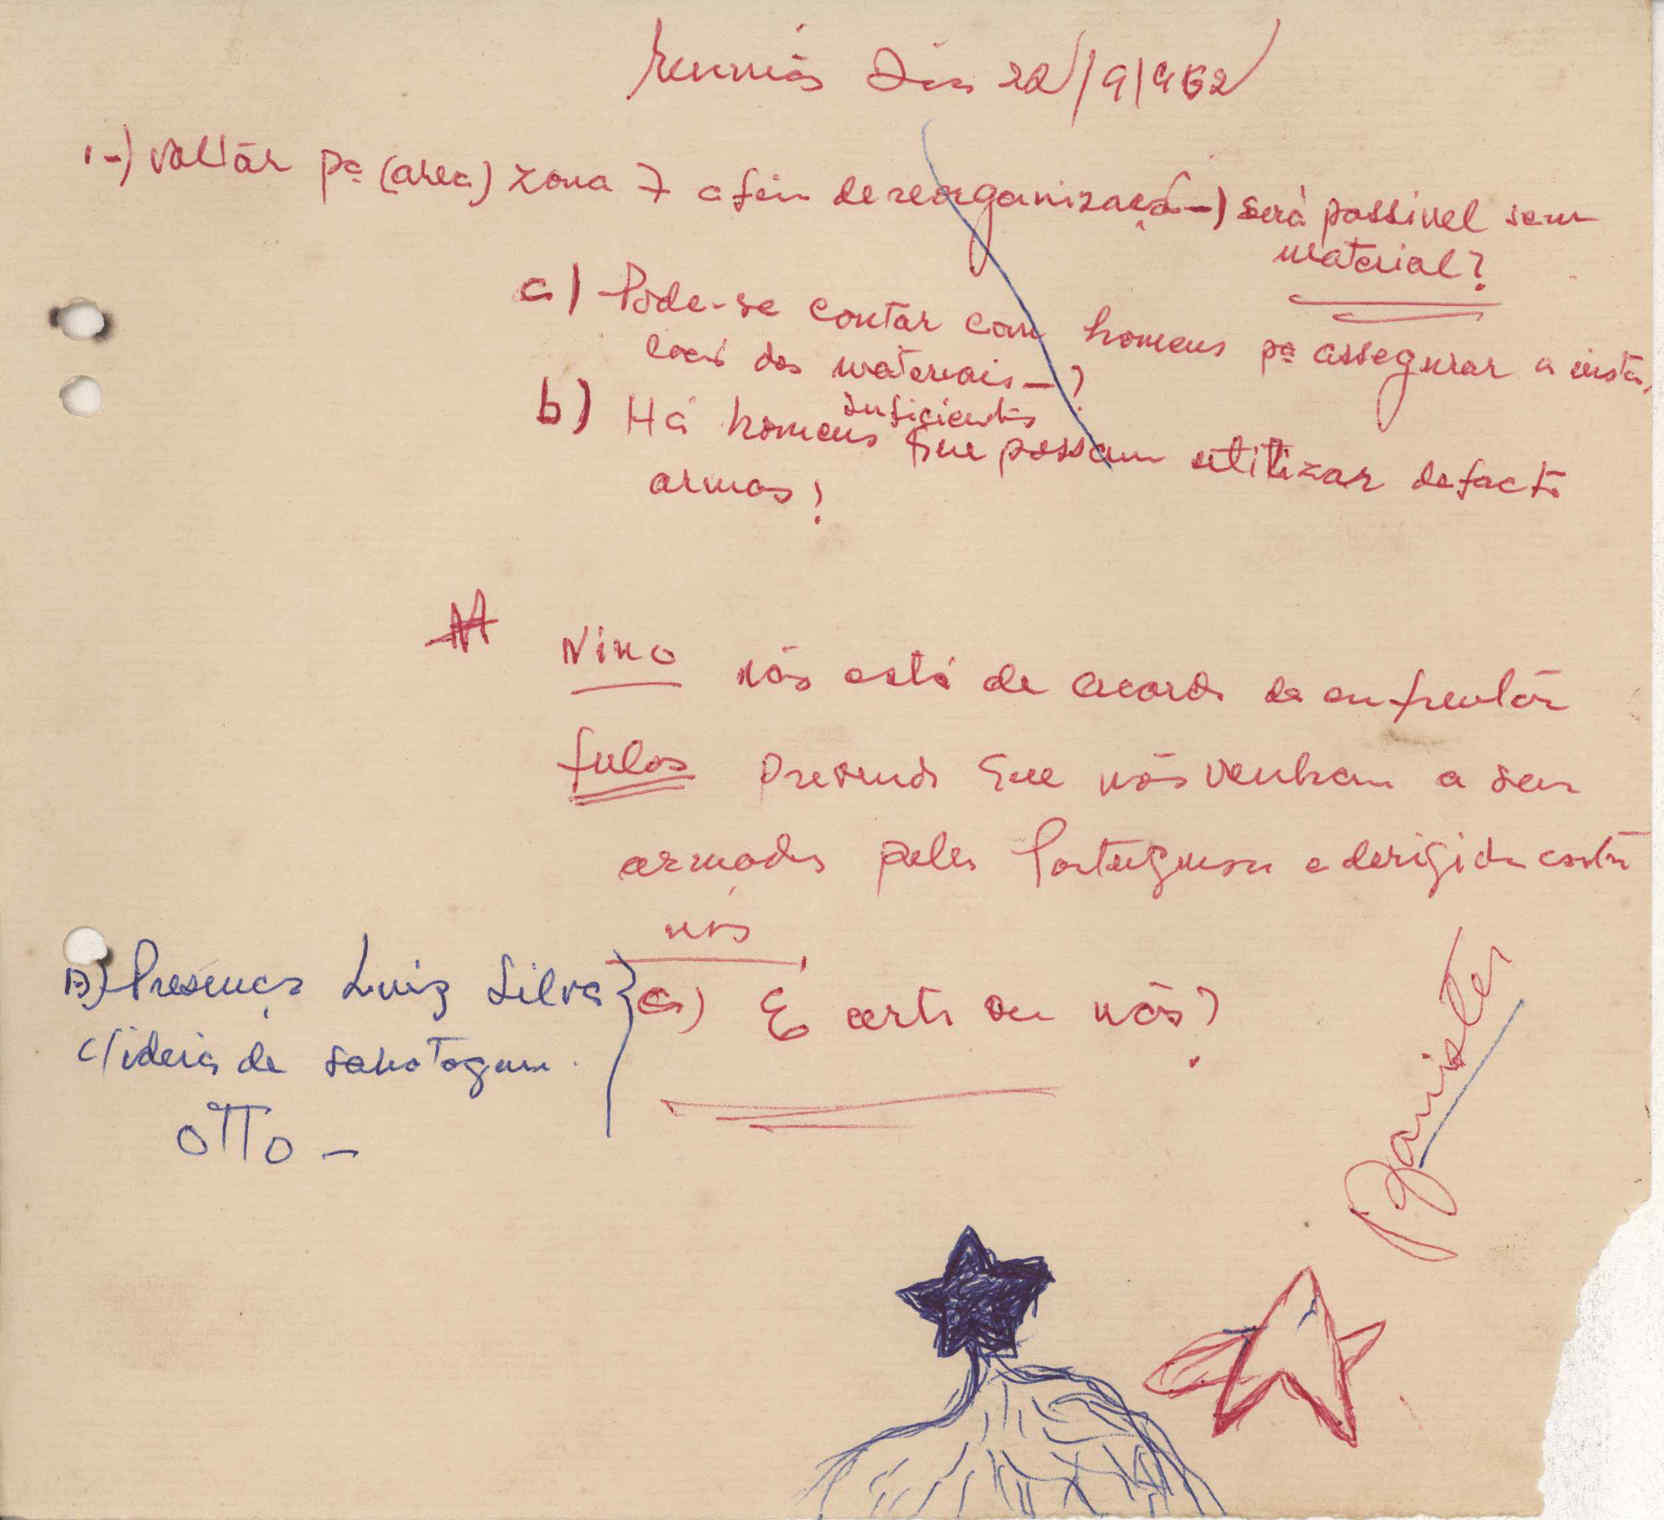 Reunião Dia 22/9/962
1-) Voltar pª (area) zona 7 a fim de reorganização -) será possivel sem
material?
a) Pode-se contar com homens pª assegurar a insta
lacã dos materiais -?
b) Há homens suficientes que possam utilizar de facto
armas?
Nino não está de acordo de enfrentar
fulas presumindo que não venham a ser
armados pelos Portugueses e derigida contra
nós
a) É certo ou não?
B) Presença Luiz Silva
c/ ideia de sabotagem.
OTTO -